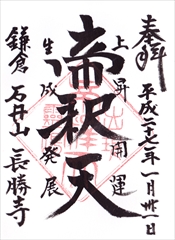 奉拝
平成二十七年一月卅一日
上昇開運
帝釈天
生成発展
鎌倉 石井山 長勝寺